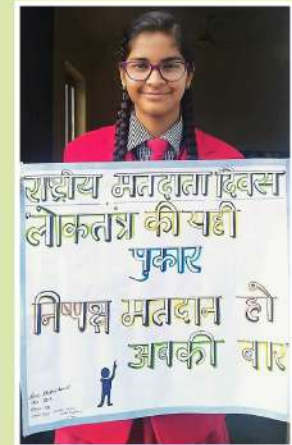 राष्ट्रीय मतदाता दिवस
लोकतंत्र की यही
पुकार
निष्पक्ष मतदान हो
अबकी बार